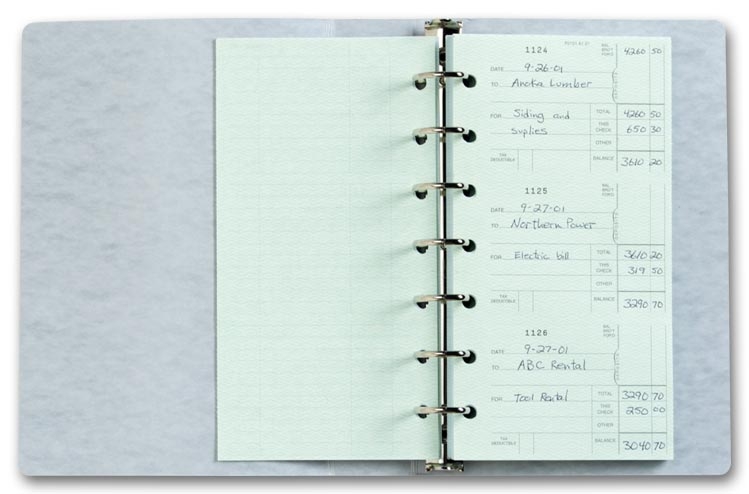 1124
BAL. BRO'T FOR'D 4260 50
DATE 9-26-01
TO Anoka Lumber
FOR Siding and TOTAL 4260 50
Suplies THIS CHECK 650 30
OTHER
TAX DEDUCTIBLE BALANCE 3610 20
1125
BAL. BRO'T FOR'D
DATE 9-27-01
TO Northern Power
FOR Electric bill TOTAL 3610 20
THIS CHECK 319 50
OTHER
TAX DEDUCTIBLE BALANCE 3290 70
1126
BAL. BRO'T FOR'D
DATE 9-27-01
TO ABC Rental
FOR Tool Rental TOTAL 3290 70
THIS CHECK 250 00
OTHER
TAX DEDUCTIBLE BALANCE 3040 70